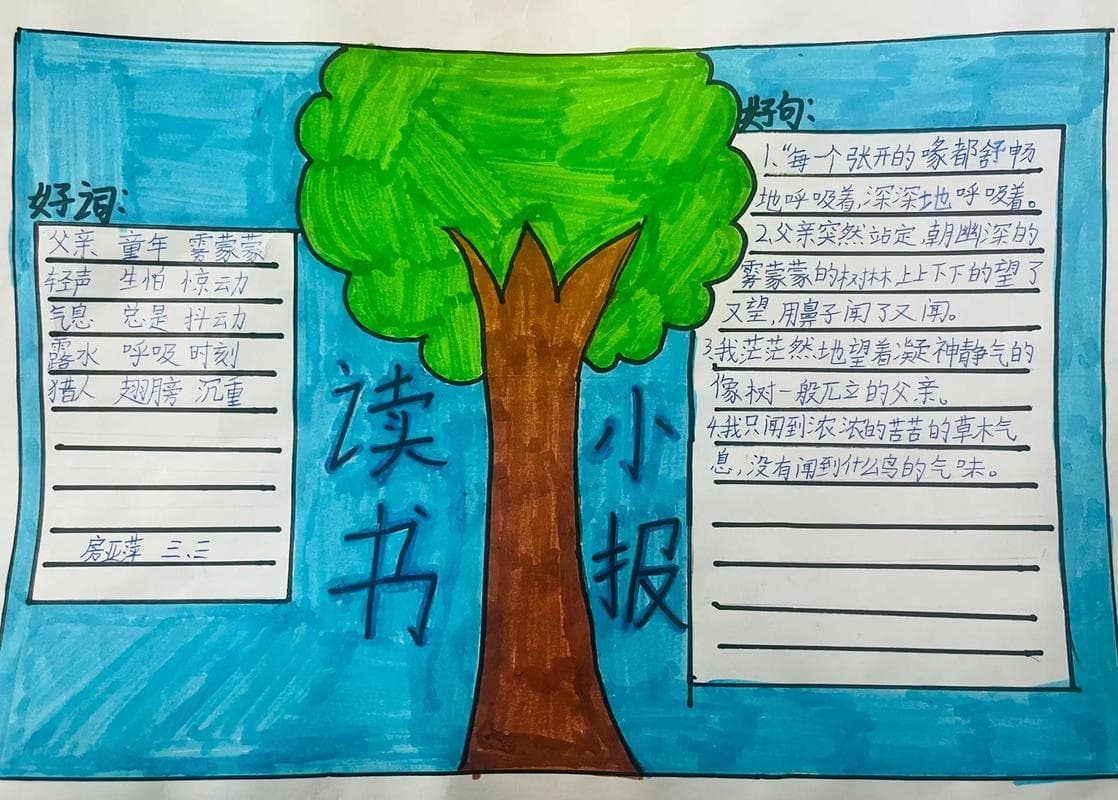 好词：
父亲 童年 雾蒙蒙
轻声 生怕 惊动
气息 总是 抖动
露水 呼吸 时刻
猎人 翅膀 沉重
房亚萍 三、三
读书
小报
好句：
1、“每一个张开的喙都舒畅
地呼吸着，深深地呼吸着。
2、父亲突然站定，朝幽深的
雾蒙蒙的树林上上下下的望了
又望，用鼻子闻了又闻。
3、我茫茫然地望着凝神静气的
像树一般兀立的父亲。
4、我只闻到浓浓的苦苦的草木气
息，没有闻到什么鸟的气味。